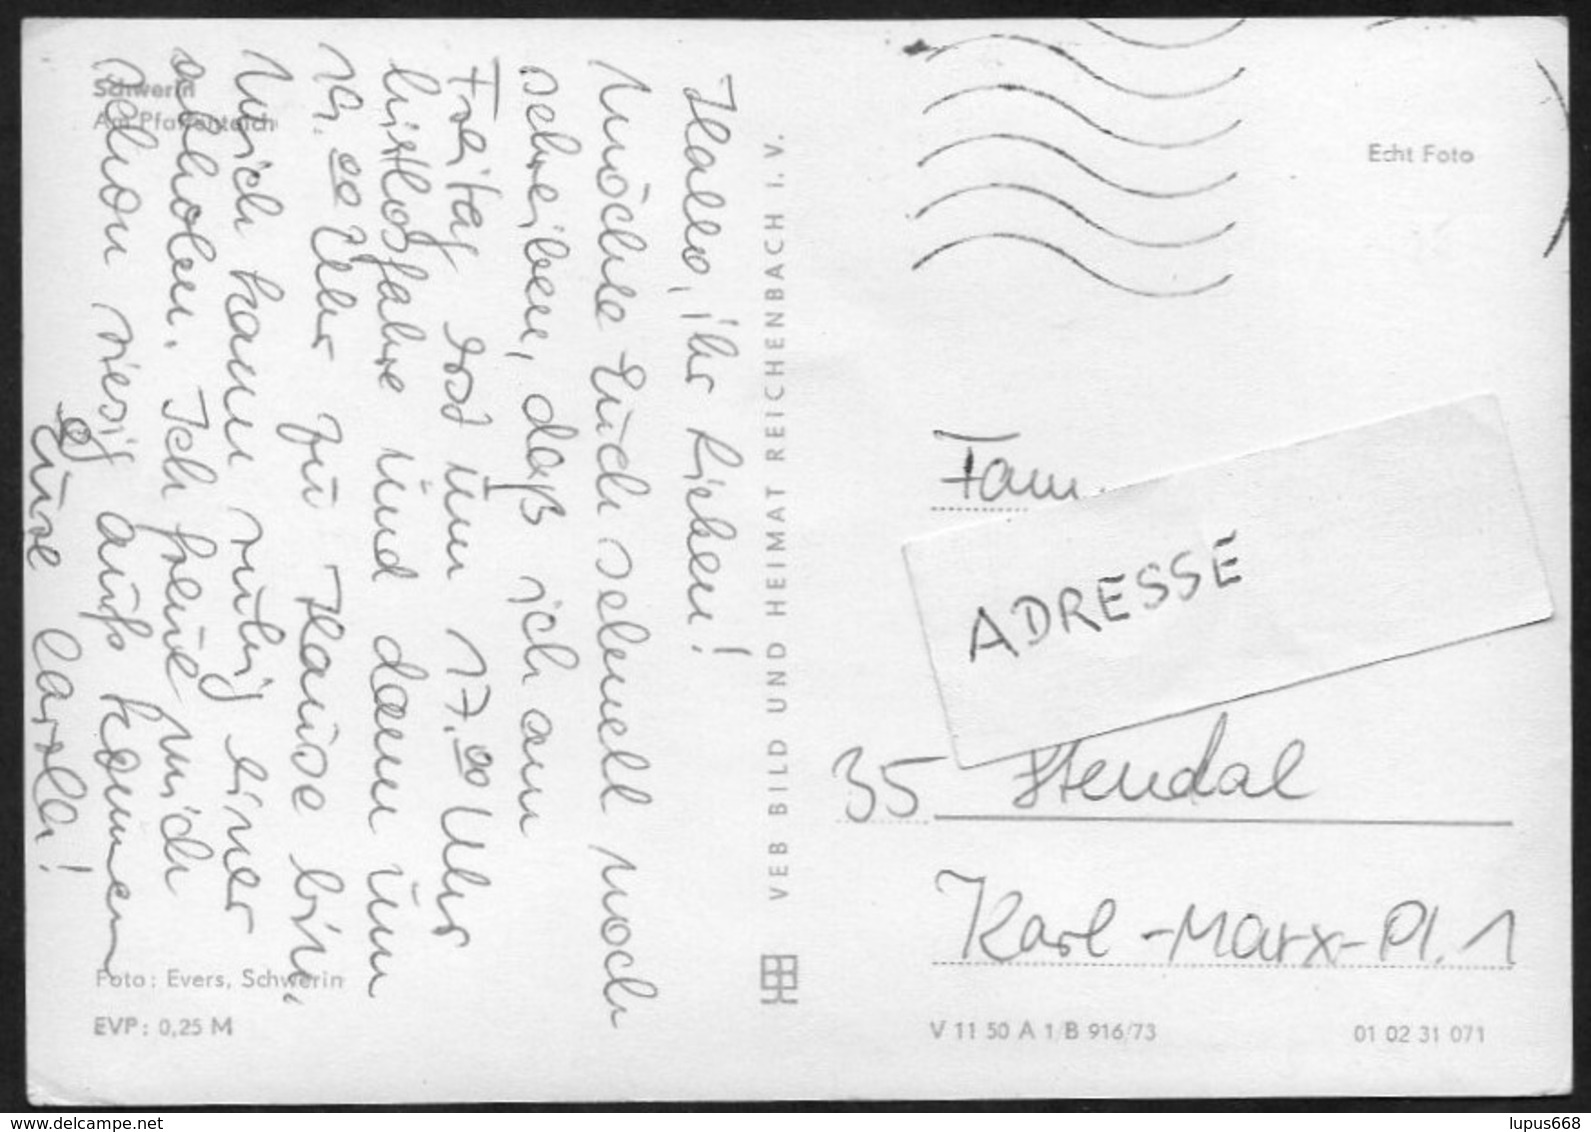 Schwerin
Am Pfaffenteich
Hallo, ihr Lieben!
Möchte Euch schnell noch
schreiben, daß ich am
Freitag erst um 17.00 Uhr
hier losfahre und dann um
19.00 Uhr zu Hause bin.
Mich kann ruhig einer
abholen. Ich freue mich
schon riesig aufs kommen
Eure Carola!
Foto: Evers, Schwerin
EVP: 0,25 M
VEB BILD UND HEIMAT REICHENBACH I. V.
Echt Foto
Fam.
ADRESSE
35 Stendal
Karl-Marx-Pl. 1
V 11 50 A 1/B 916/73
01 02 31 071
delcampe.net
lupus668